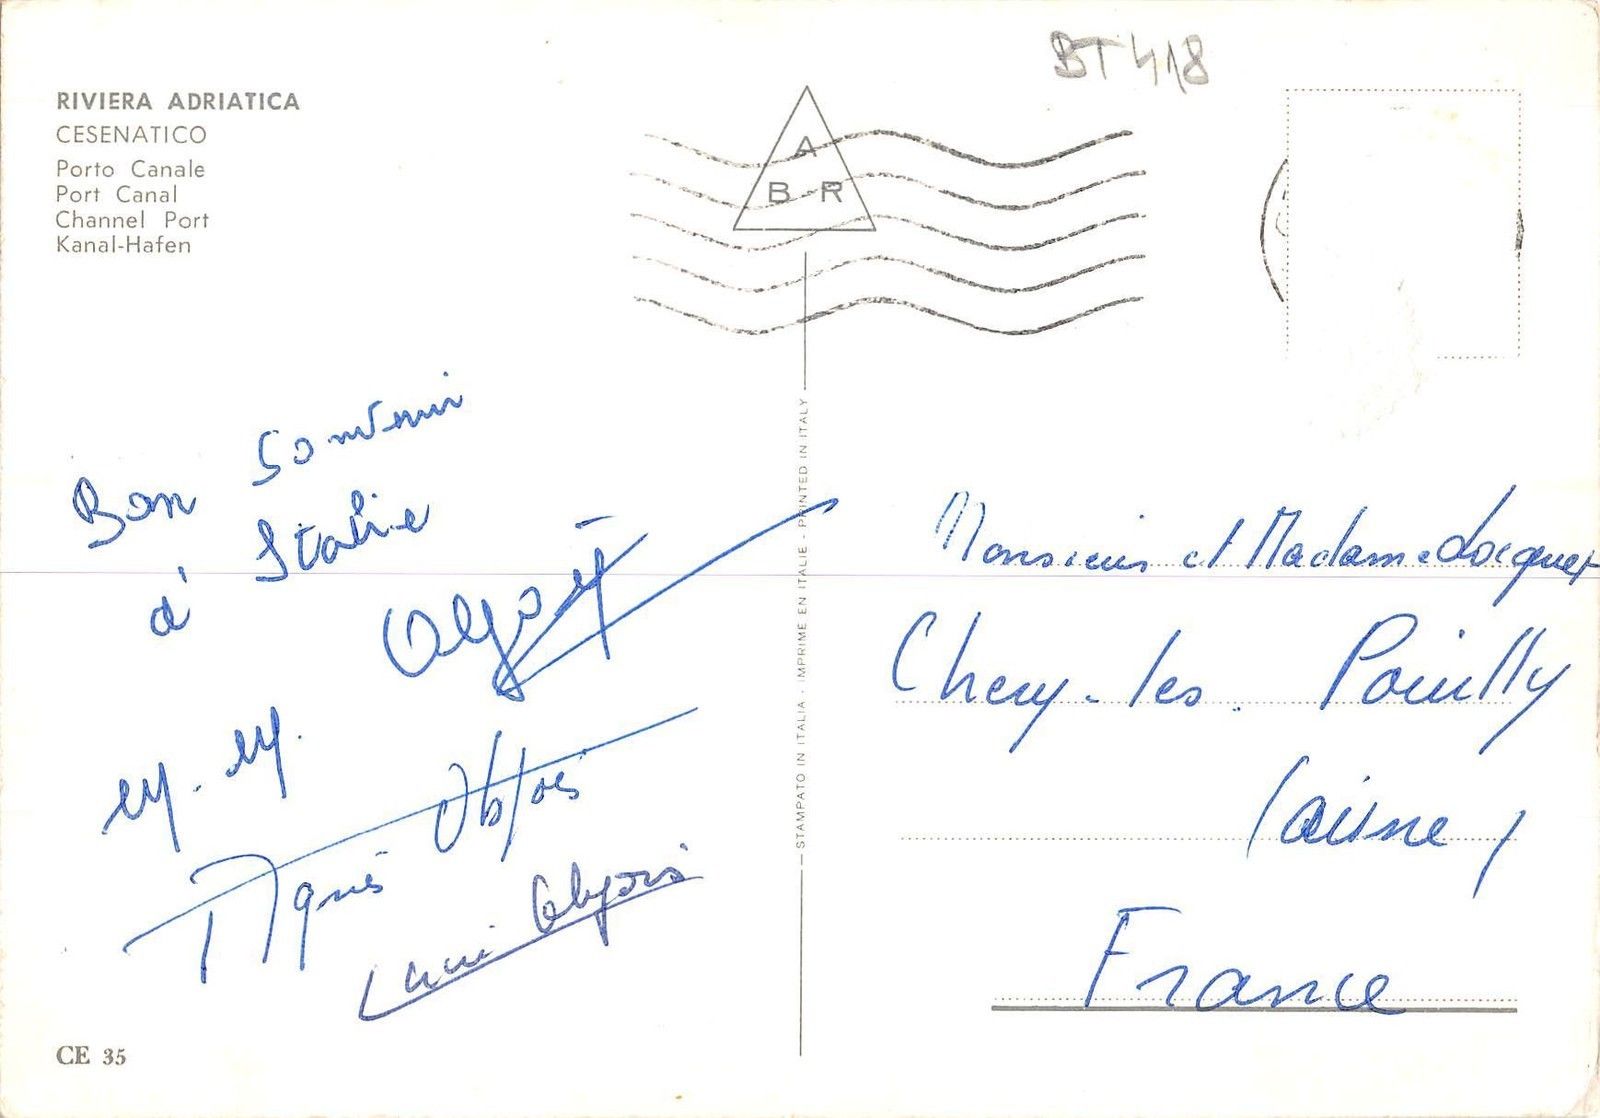 RIVIERA ADRIATICA
CESENATICO
Porto Canale
Port Canal
Channel Port
Kanal-Hafen
BT 418
A
B R
Bon Souvenir
d' Italie
Agnès
STAMPATO IN ITALIA - IMPRIME EN ITALIE - PRINTED IN ITALY
Monsieur et Madame Locquet
Chery-les-Pouilly
(aisne)
France
CE 35